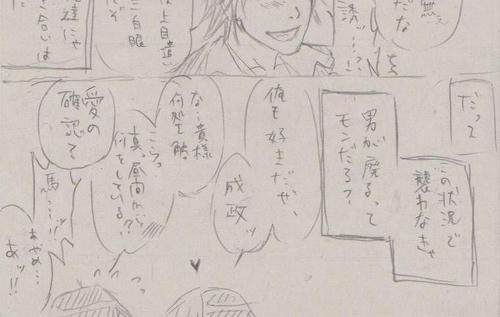 無ェ
だな
誘ッ…？！
上目遣い
三白眼
だぞ
達にゃ
合いは
だって
この状況で
襲わなきゃ
男が廃るって
モンだろ？
俺も好きだぜ、
成政ッ
な…貴様
何処を
こらっ
真っ昼間から
何をしている！？
愛の
確認て
馬……ッ！
あッ！！